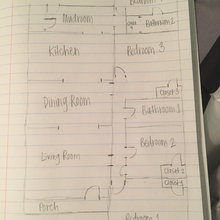 Bedroom
Mudroom
Bathroom 2
Kitchen
Bedroom 3
Closet 3
Dining Room
Bathroom 1
Bedroom 2
Living Room
Closet 2
Closet 1
Porch
Bedroom 1